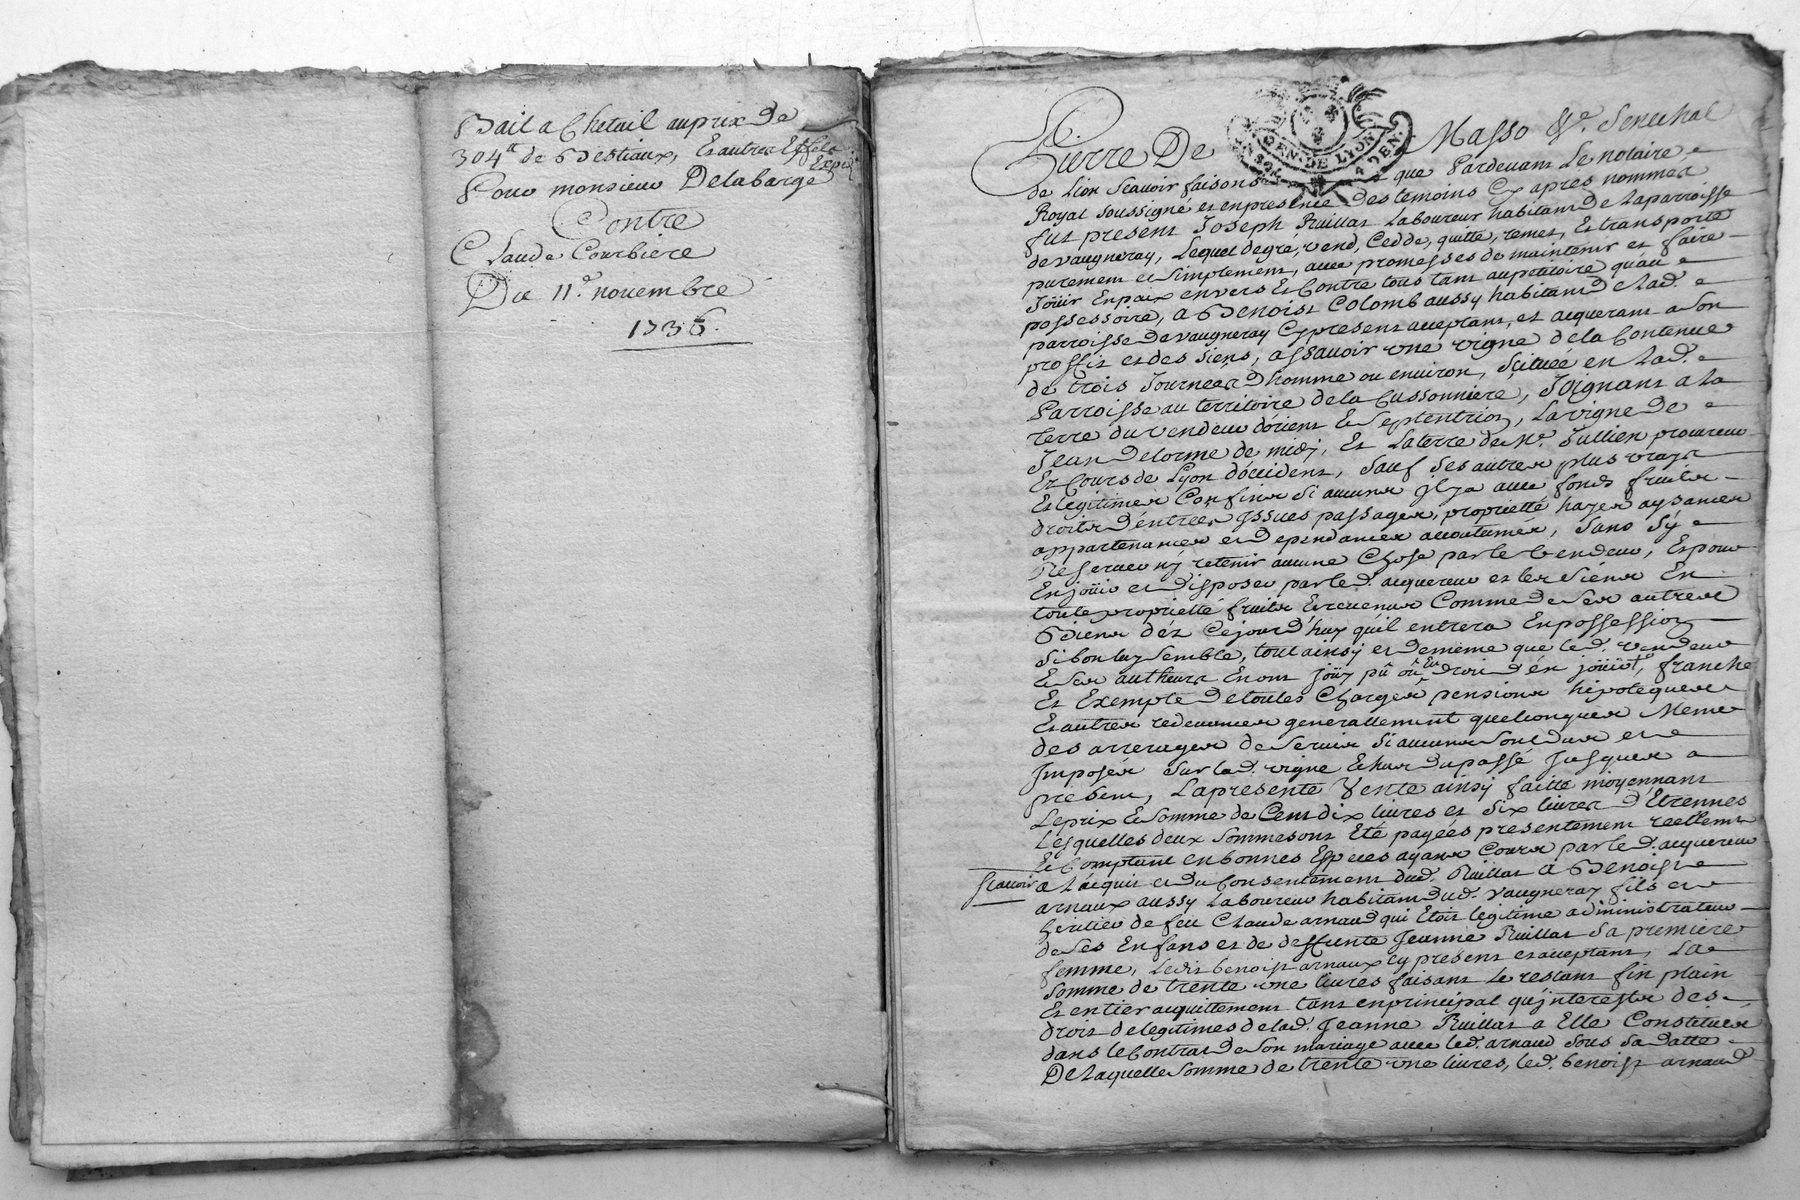 Bail a Chetail au prix de
304# de Bestiaux, Et autres Effets
Expié
Pour monsieur Delabarge
Contre
Claude Courbiere
Du 11e. novembre
1736.
GEN. DE LYON
4 DEN.
Pierre De Masso Sr. Senechal
de Lion Scavoir faisons que Pardevant Le notaire
Royal Soussigné et en presence des temoins Cy apres nommez
fut present Joseph Ruillat Laboureur habitant de La parroisse
de vaugneray, Lequel de gré, vend, Cedde, quitte, remet, Et transporte
purement et Simplement, avec promesses de maintenir et faire
Joüir En paix envers Et Contre tous tant au petitoire qu'au
possessoire, a Benoist Colomb aussy habitant de Lad.
parroisse de vaugneray Cy present acceptant, et acquerant a Son
proffit et des Siens, assavoir une vigne de la Contenue
de trois Journées d'homme ou environ, Scituée en Lad.
Parroisse au territoire de la Cussonniere, Joignant a La
Terre du vendeur d'orient Et Septentrion, La vigne de
Jean Delorme de midy, Et La terre de Me. Jullien procureur
Ez Cours de Lyon d'occident, Sauf Ses autres plus vrays
Et legitimes Confins Si aucuns Il y a avec fonds fruits
droits d'entrées Issues passages, proprietté hayes aysances
appartenances et dependances accoutumes, Sans S'y
Reserver n'y retenir aucune Chose par le Vendeur, Et pour
En joüir et disposer par led. acquereur et les Siens En
toute proprietté fruits Et revenus Comme de Ses autres
Biens dés Cejourd'huy qu'il entrera En possession
Si bon luy Semble, tout ainsy et de mème que led. vendeur
Et Ses autheurs En ont joüy pû où Eu droit d'en joüir, franche
Et Exempte de toutes Charges pensions hipoteques
Et autres redevances generallement quelconques Meme
des arrerages de Servis Si aucuns Sont dus et
Imposés Sur lad. vigne Echus du passé Jusques a
présent, La presente Vente ainsy faitte moyennant
Le prix Et Somme de Cent dix livres et Six livres d'Etrennes
Lesquelles deux Sommes ont Eté payées presentement reellemt
Et Comptant en bonnes Especes ayant Cours par led. acquereur
Scavoir
a L'acquit et du Consentement dud. Ruillat a Benoist
arnaux aussy Laboureur habitant dud. vaugneray fils et
heritier de feu Claude arnaud qui Etoit legitime administrateur
de Ses Enfans et de deffunte Jeanne Ruillat Sa premiere
femme, Ledit benoist arnaux cy présent et acceptant, La
Somme de trente une livres faisant Le restant fin plain
Et entier acquittement tant en principal qu'interests des
droit de legitimes de lad. Jeanne Ruillat a Elle Constituez
dans le Contrat de Son mariage avec led. arnaud sous Sa datte
De Laquelle Somme de trente une livres, led. benoist arnaud